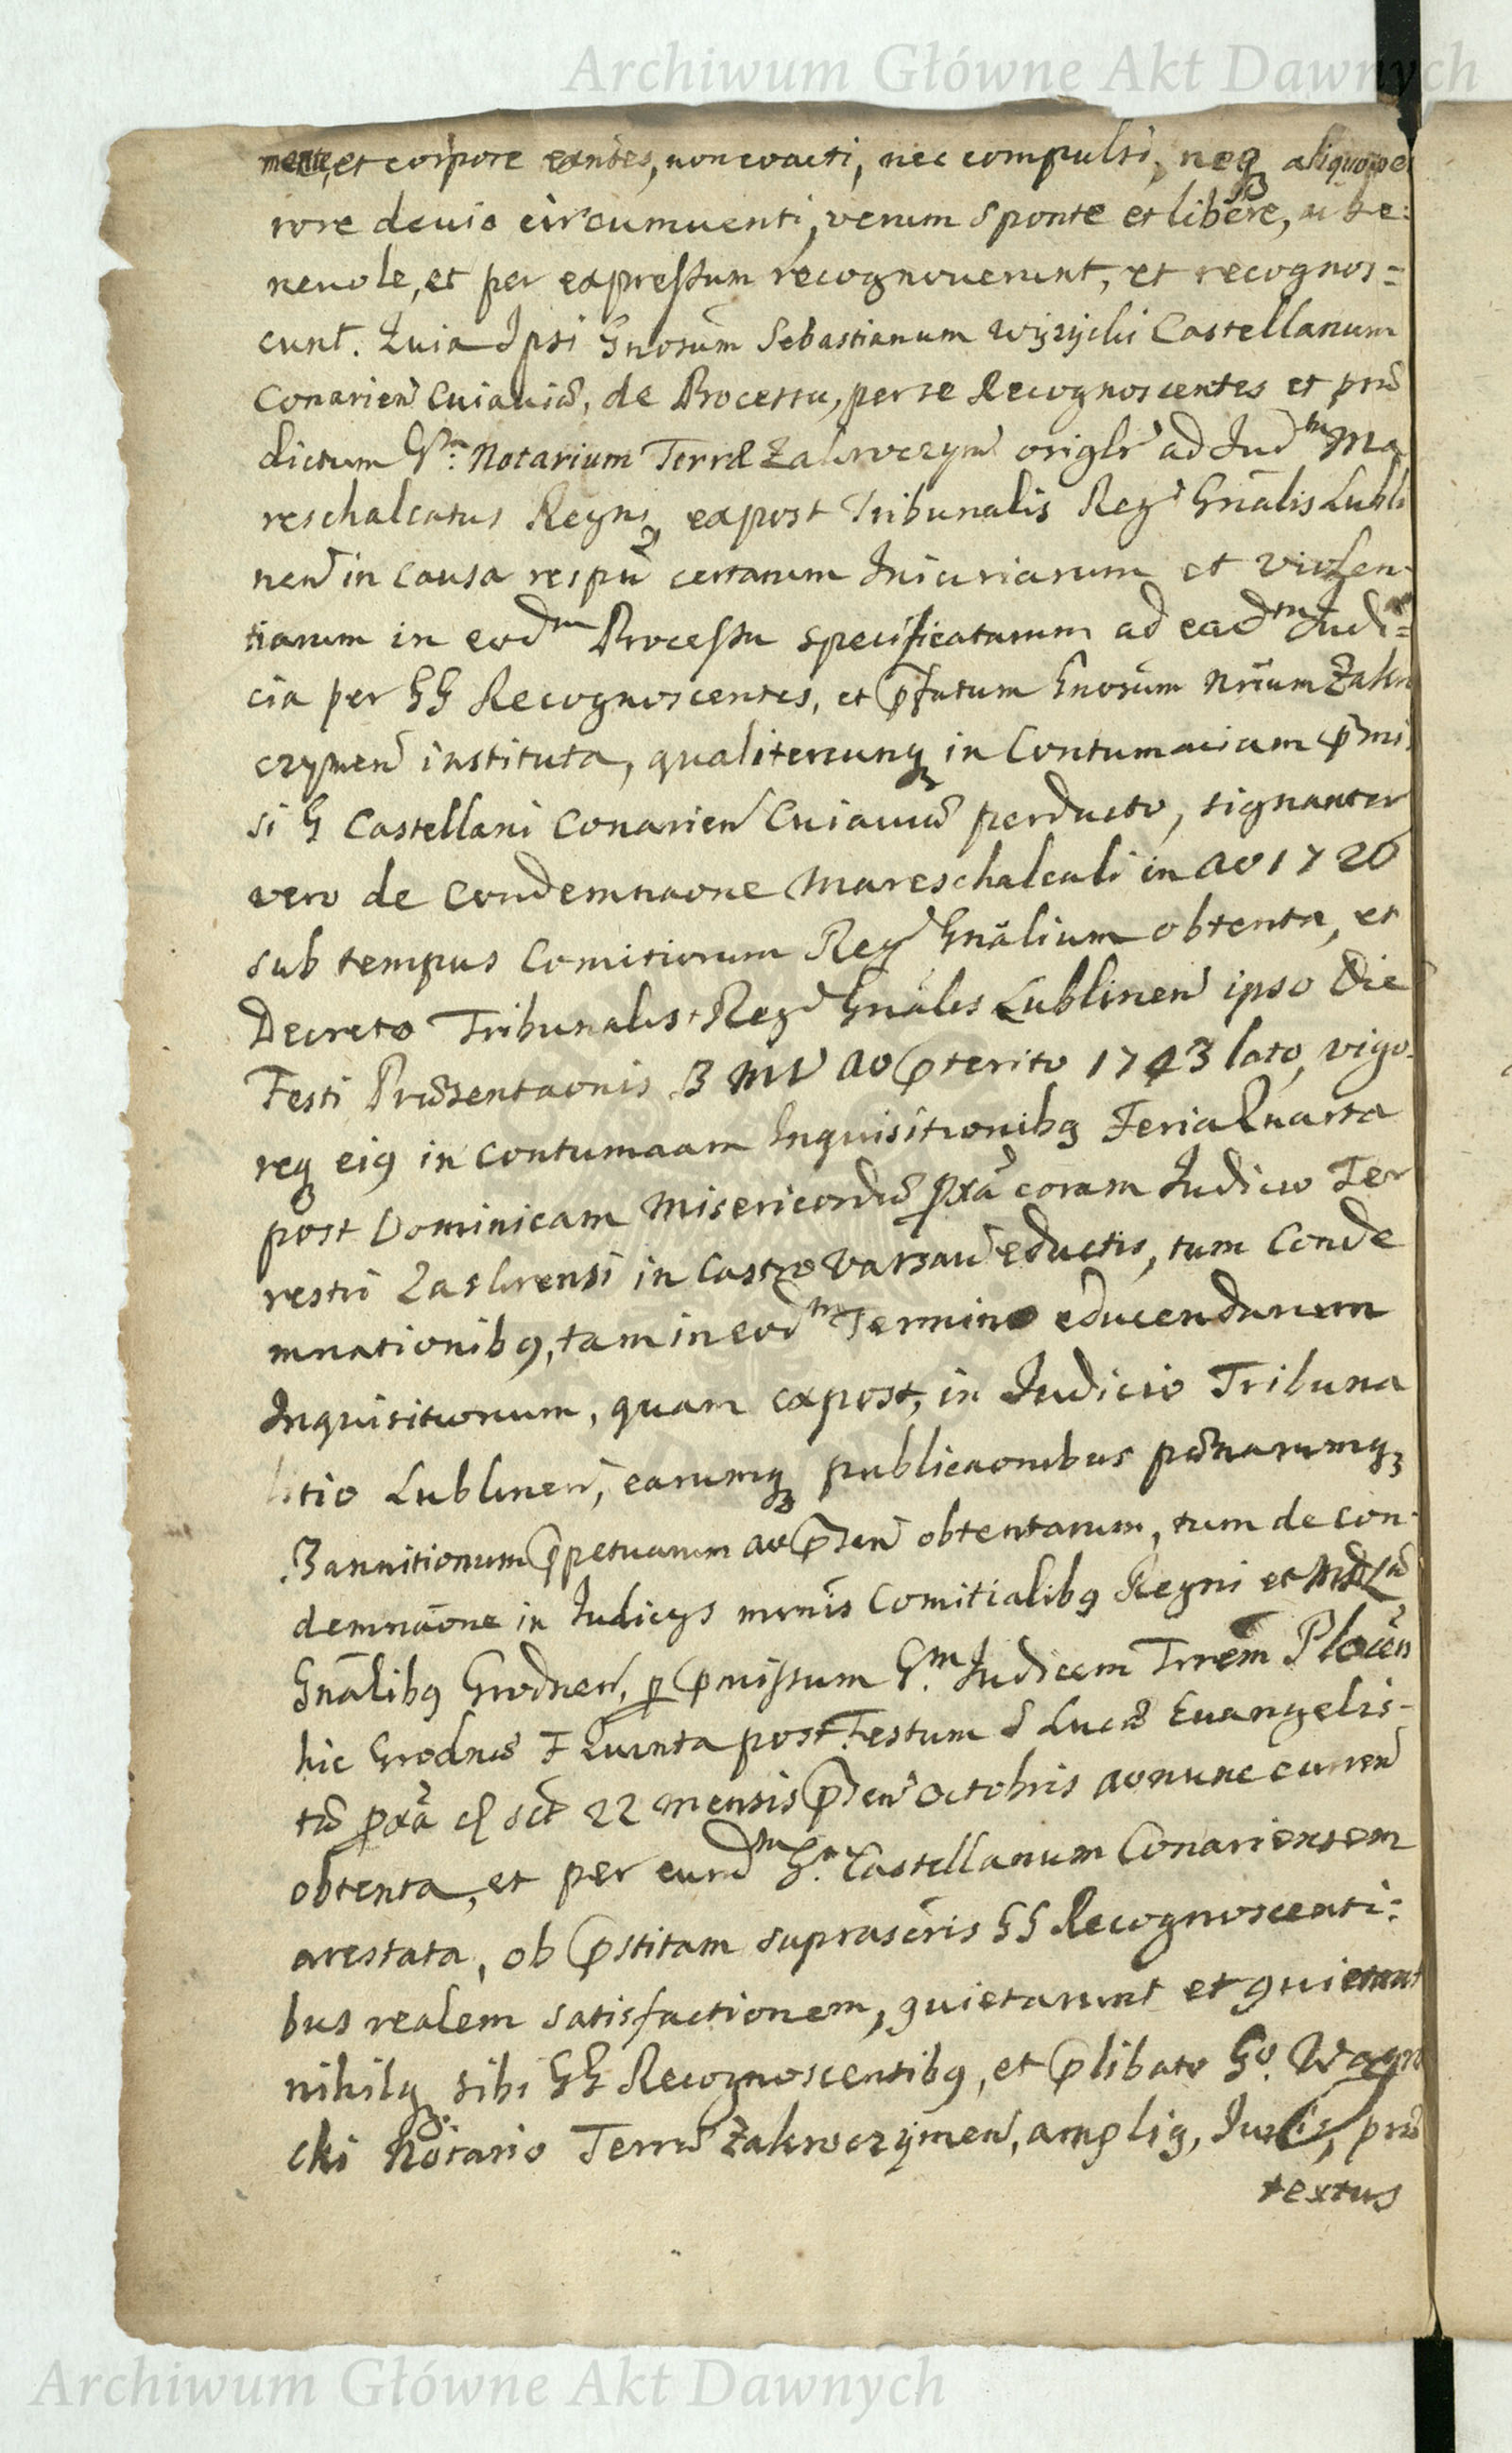 Archiwum Główne Akt Dawnych
mente, et corpore exñtes, non coacti, nec compulsi, neq₃ aliquo per
rore devio circumventi, verum sponte et libere, ac be:
nevole, et per expressum recognoverunt, et recognos=
cunt. Quia Ipsi Gnosum Sebastianum Wyżycki Castellanum
Conarien Cuiaviæ, de Processu, per se Recognoscentes et præ
dictum Gm Notarium Terræ Zakroczymen origlr ad Jud m Ma
reschalcatus Regni, expost Tribunalis Reg Gnalis Lubli
nen in causa respu certarum Injuriarum et violen-
tiarum in eod m Processu specificatarum ad ead m Judi=
cia per GG Recognoscentes, et pfatum Gnosum Nrium Zakro
czymen instituta, qualitercunq₃ in Contumaciam pmis
si G Castellani Conarien Cuiaviæ perducto, signanter
vero de Condemnaone Mareschalcali in ao 1720
sub tempus Comitiorum Reg Gnalium obtenta, et
Decreto Tribunalis Reg Gnalis Lublinen ipso Die
Festi Præsentaonis B M V ao pterito 1743 lato, vigo-
req₃ eig in contumaam Inquisitionibg Feria Quarta
post Dominicam Misericordiæ pxa coram Judicio Ter
restri Zakrensi in Castro Varsav eductis, tum Conde
mnationibg, tam in eod m Termino educendarum
Inquisitionum, quam expost, in Judicio Tribuna
litio Lublinen, earumq₃ publicaonibus pœnarumq₃
Bannitionum ppetuarum ao psen obtentarum, tum de con-
demnaone in Judicys mmis Comitialibg Regni et MDL
Gnalibg Grodnen, p pmissum Gm Judicem Trrem Plocen
hic Grodnæ F Quinta post Festum S Lucæ Evangelis-
tæ pxa sct 22 mensis psen Octobris ao nunc curren
obtenta, et per eund m Gm Castellanum Conariensem
arestata, ob pstitam suprascris GG Recognoscenti:
bus realem satisfactionem, quietarunt et quietant
nihilq₃ sibi GG Recognoscentibg, et plibato Go. Wagro
cki Notario Terræ Zakroczymen, amplig, Juris, præ
textus
Archiwum Główne Akt Dawnych